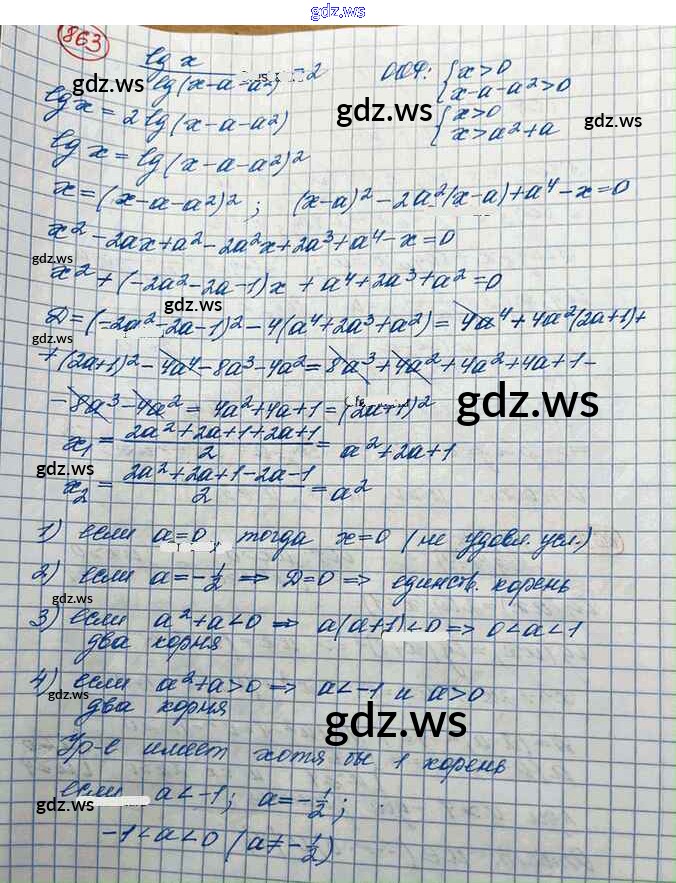 gdz.ws
863
lg x / lg(x-a-a²) = 2 ОДЗ: { x>0
x-a-a²>0
lg x = 2 lg(x-a-a²) { x>0
x>a²+a
gdz.ws
gdz.ws
gdz.ws
lg x = lg(x-a-a²)²
x=(x-a-a²)²; (x-a)²-2a²(x-a)+a⁴-x=0
x²-2ax+a²-2a²x+2a³+a⁴-x=0
gdz.ws
x²+(-2a²-2a-1)x+a⁴+2a³+a²=0
gdz.ws
D=(-2a²-2a-1)²-4(a⁴+2a³+a²)=4a⁴+4a²(2a+1)+
gdz.ws
+(2a+1)²-4a⁴-8a³-4a²=8a³+4a²+4a²+4a+1-
-8a³-4a²=4a²+4a+1=(2a+1)²
gdz.ws
x₁=(2a²+2a+1+2a+1)/2=a²+2a+1
gdz.ws
x₂=(2a²+2a+1-2a-1)/2=a²
1) если a=0, тогда x=0 (не удовл. усл.)
gdz.ws
2) если a=-1/2 => D=0 => единств. корень
gdz.ws
3) если a²+a<0 => a(a+1)<0 => 0<a<1
два корня
4) если a²+a>0 => a<-1 и a>0
gdz.ws
два корня
gdz.ws
Ур-е имеет хотя бы 1 корень
если a<-1; a=-1/2;
gdz.ws
-1<a<0 (a≠-1/2)
gdz.ws